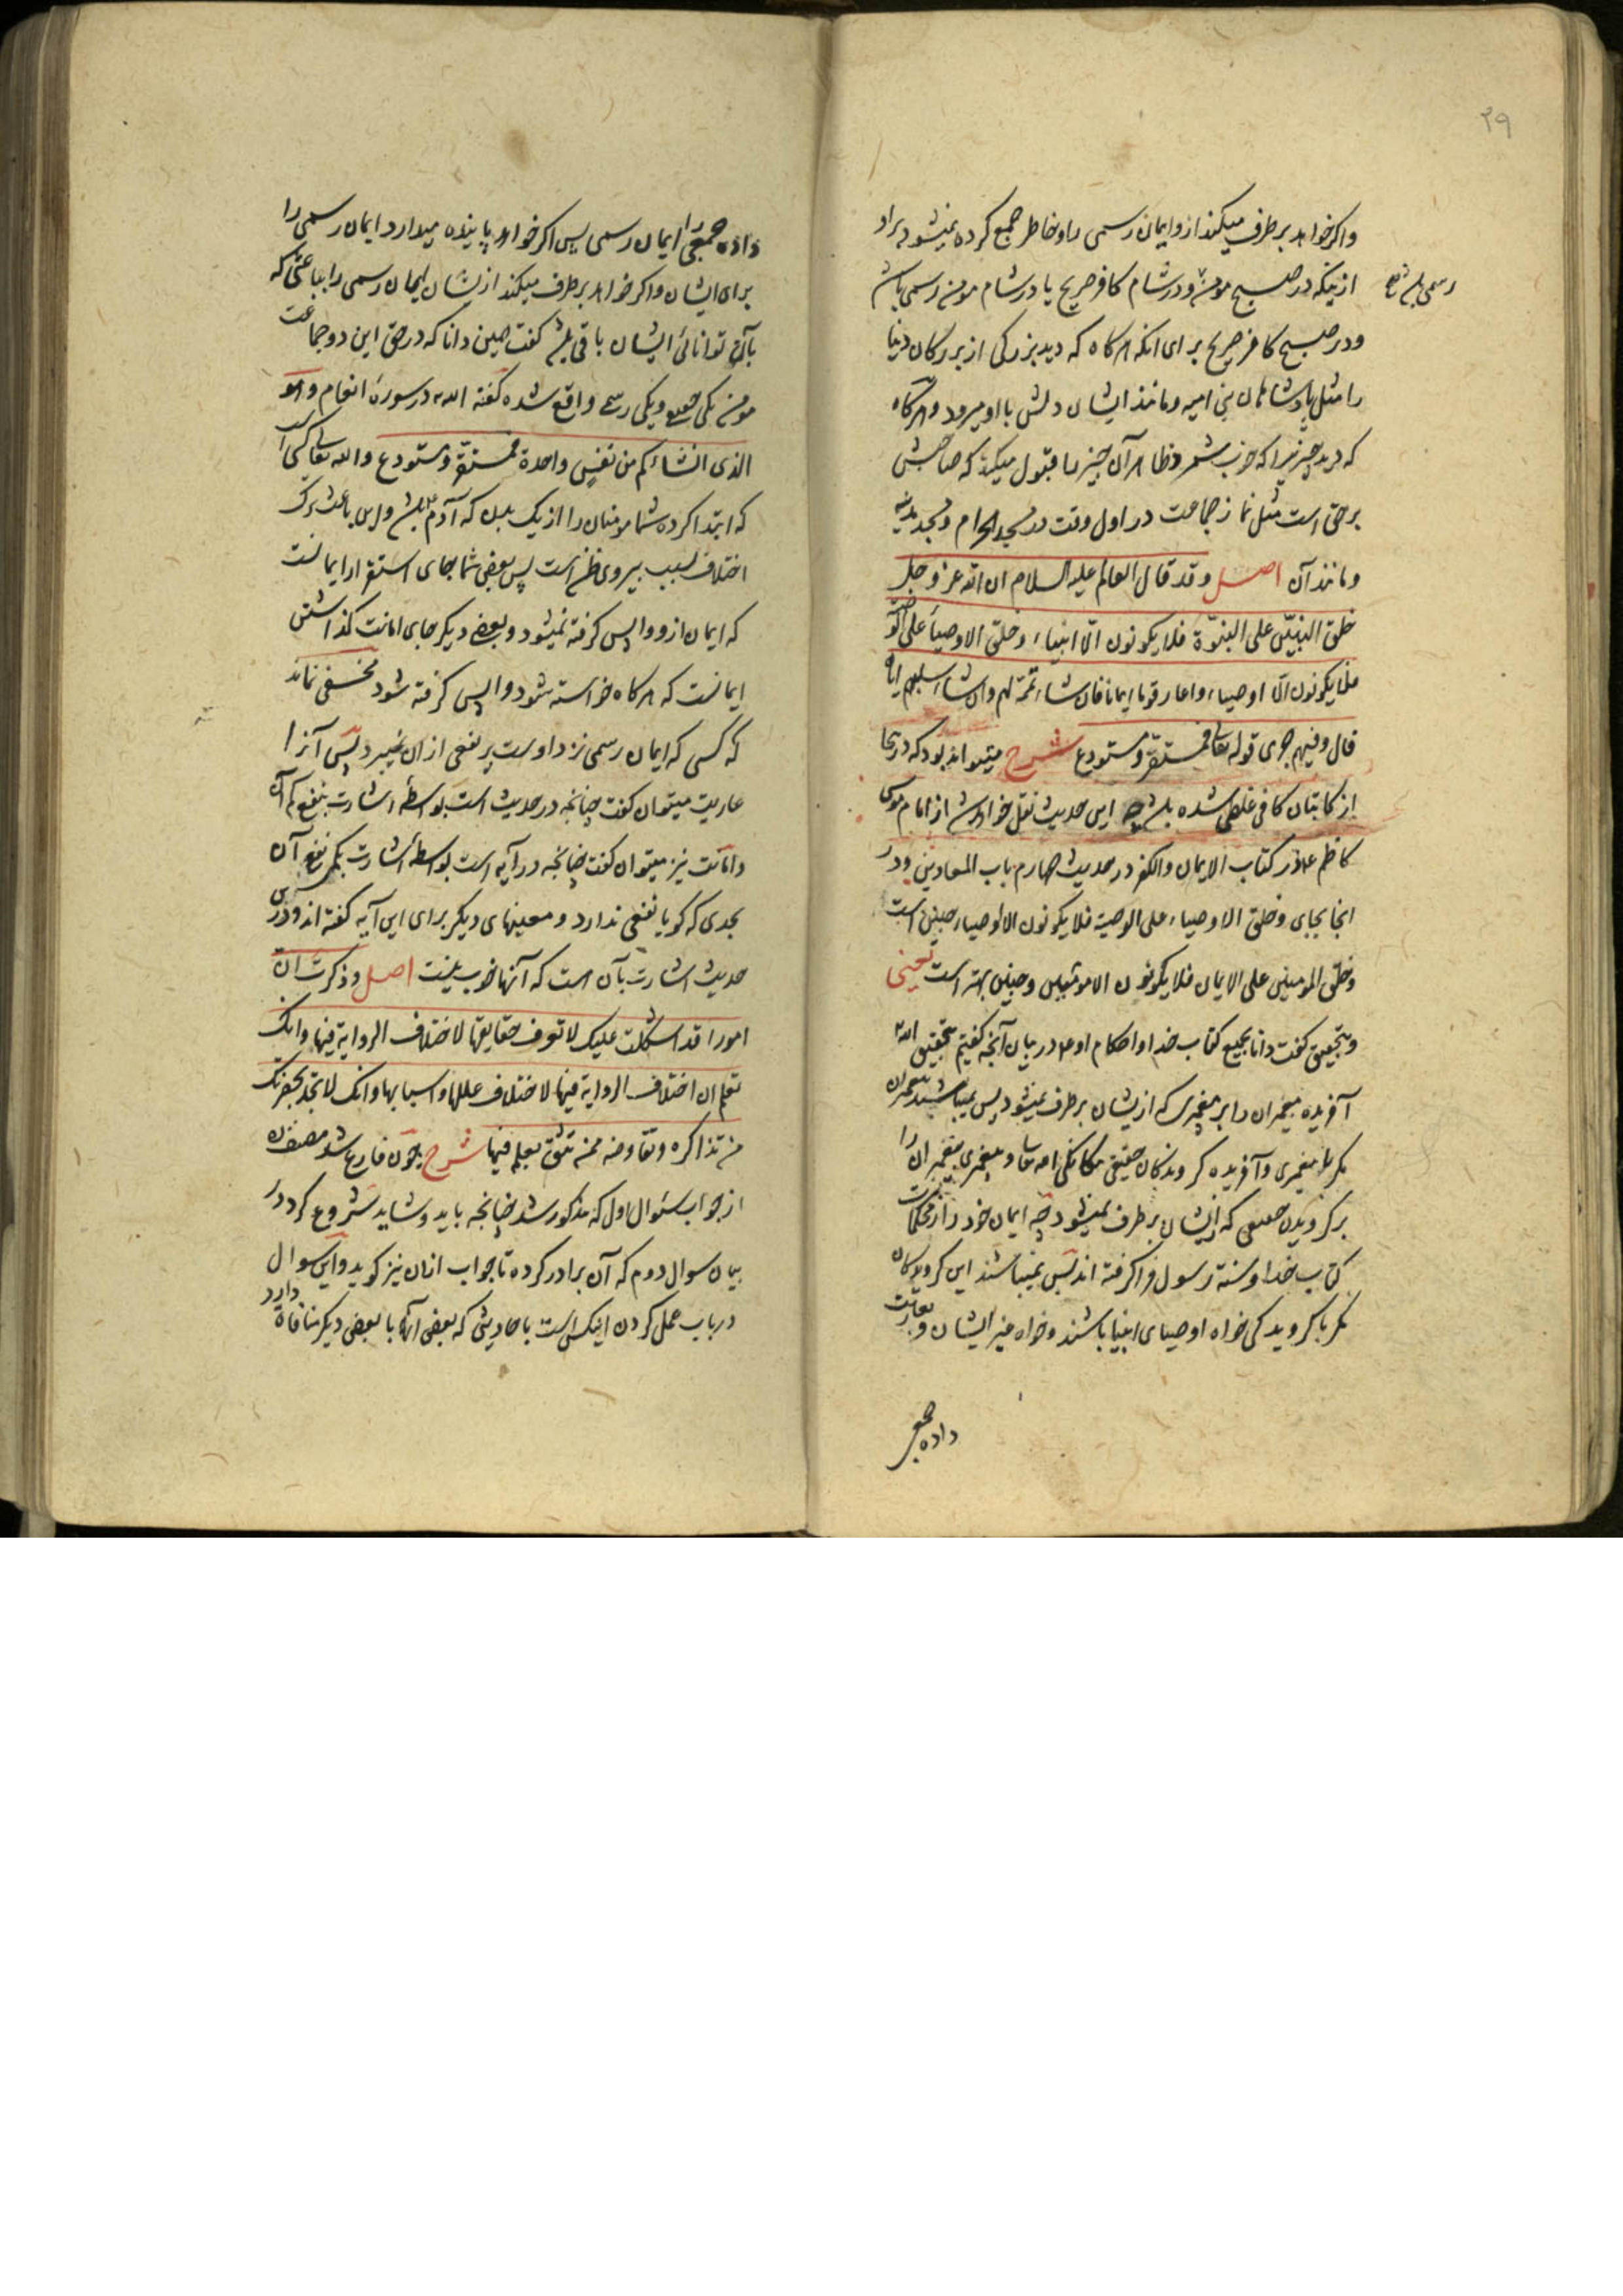 ۲۹
واکر خواهد برطرف میکند ازو ایمان رسمی را و خاطر جمع کرده نمیشود براو
رسمی باشد صح
ازینکه در صبح مومن و در شام کافر صریح یا در شام مومن رسمی باشد
و در صبح کافر صریح برای انکه هرکاه که دید بزرکی از بزرکان دنیا
را مثل پادشاهان بنی امیه و مانند ایشان دلش با او میرود و هرکاه
که دید چیزیرا که خوب شمرد ظاهر آن چیز را قبول میکند که صاحبش
بر حق است مثل نماز جماعت در اول وقت در مسجد الحرام و مسجد مدینه
و مانند آن اصل وقد قال العالم علیه السلام ان الله عز وجل
خلق النبیین علی النبوة فلا یکونون الا انبیاء وخلق الاوصیاء علی الوصیة
فلا یکونون الا اوصیاء واعار قوما ایمانا فان شاء تممه لهم وان شاء سلبهم ایاه
قال وفیهم جری قوله تعالی فمستقر ومستودع شرح میتواند بود که در اینجا
از کاتبان کافی غلطی شده باشد چه این حدیث نقل خواهد شد از امام موسی
کاظم ع در کتاب الایمان والکفر در حدیث چهارم باب المعارین و در
انجا بجای وخلق الاوصیاء علی الوصیة فلا یکونون الا اوصیاء چنین است
وخلق المومنین علی الایمان فلا یکونون الا مومنین و چنین بهتر است یعنی
و بتحقیق کفت دانا بجمیع کتاب خدا و احکام او ع در بیان آنچه کفتیم بتحقیق الله
آفریده پیغمبران را بر پیغمبری که ازیشان برطرف نمیشود پس نمیباشند پیغمبران
مکر با پیغمبری و آفریده کروندکان حقیقی
بر کرویدن حقیقی که ازیشان برطرف نمیشود چه ایمان خود را از محکمات
کتاب خدا و سنة رسول فرا کرفته اند پس نمیباشند این کروندکان
مکر با کرویدکی خواه اوصیای انبیا باشند و خواه غیر ایشان و بعاریت
داده جمعی
داده جمعی را ایمان رسمی پس اکر خواهد پاینده میدارد ایمان رسمی را
برای ایشان و اکر خواهد برطرف میکند ازیشان ایمان رسمی را بباعثی که
با آن توانائی ایشان باقی باشد کفت همین دانا که در حق این دو جماعت
مومن یکی حقیقی و یکی رسمی واقع شده کفته الله در سورهٔ انعام وهو
الذی انشاءکم من نفس واحدة فمستقر ومستودع و الله تعالی کسی است
که ابتدا کرده شما مومنان را از یک بدن که آدم ع باشد و این باعث ترک
اختلاف بسبب پیروی ظن است پس بعضی شما جای استقرار ایمانست
که ایمان ازو واپس کرفته نمیشود و بعضی دیکر جای امانت کذاشتن
ایمانست که هرکاه خواسته شود واپس کرفته شود مخفی نماند
که کسی که ایمان رسمی نزد اوست پر نفعی ازان نمیبرد پس آنرا
عاریت میتوان کفت چنانچه در حدیث است بواسطهٔ اشارت بنفع کم آن
و امانت نیز میتوان کفت چنانچه در آیه است بواسطهٔ اشارت بکمی نفع آن
بحدی که کویا نفعی ندارد و معنیهای دیکر برای این آیه کفته اند و درین
حدیث اشارت بآن است که آنها خوب نیست اصل وذکرت ان
امورا قد اشکلت علیک لا تعرف حقایقها لاختلاف الروایة فیها وانک
تعلم ان اختلاف الروایة فیها لاختلاف عللها واسبابها وانک لا تجد بحضرتک
من تذاکره وتفاوضه ممن تثق بعلمه فیها شرح چون فارغ شد مصنف
از جواب سئوال اول که مذکور شد چنانچه باید و شاید شروع کرد در
بیان سوال دوم که آن برادر کرده تا جواب ازان نیز کوید و این سوال
در باب عمل کردن اینکس است باحادیثی که بعضی آنها با بعضی دیکر منافاة دارد